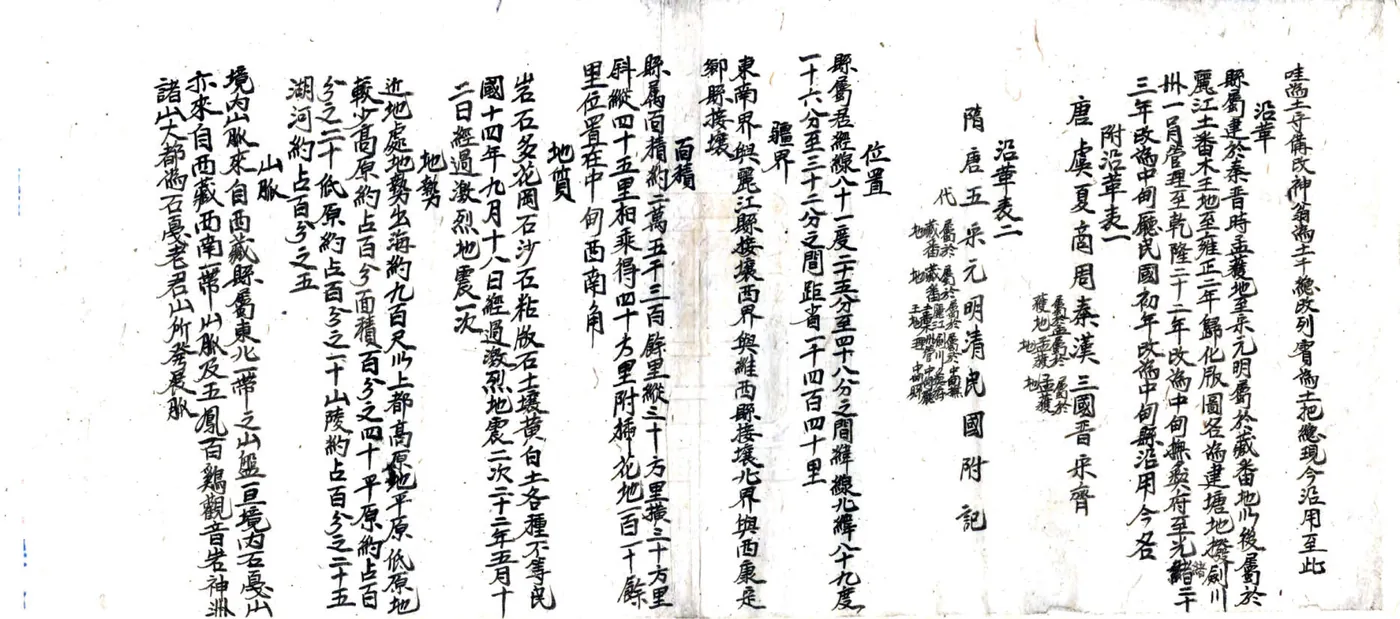 哇當土守備改神翁為土千總改列賓為土把總現今沿用至此
沿革
縣屬建於秦晋時孟獲地至宋元明屬於藏番地以後屬於
麗江土番木王地至雍正二年歸化版圖名為建塘地撥劍川
卅一員管理至乾隆二十二年改為中甸撫彞府至光緒二十
三年改為中甸廳民國初年改為中甸縣沿用今名
附沿革表一
唐虞夏商周秦漢三國晋宋齊
屬孟獲地 屬於孟獲地 屬於孟獲地
沿革表二
隋唐五宋元明清民國附記
代
屬於藏番地 屬於藏番地
位置
縣屬居經線八十一度二十五分至四十八分之間緯線北緯八十九度
一十六分至三十二分之間距省一千四百四十里
疆界
東南界與麗江縣接壤西界與維西縣接壤北界與西康定
鄉縣接壤
面積
縣属面積約二萬五千三百餘里縱三十方里橫三十方里
斜縱四十五里相乘得四十方里附掃花地一百一十餘
里位置在中甸西南角
地質
岩石多花岡石沙石粘版石土壤黄白土各種不等民
國十四年九月十八日經過激烈地震二次二十二年五月十
二日經過激烈地震一次
地勢
近地處地勢出海約九百尺以上都高原地平原低原地
較少高原約占百分面積百分之四十平原約占百
分之二十低原約占百分之一十山陵約占百分之二十五
湖河約占百分之五
山脈
境内山脈來自西藏縣屬東北一帶之山盤亘境内石戞山
亦來自西藏西南一帶山脈及五鳳百鷄觀音岩神洲
諸山大都為石戞老君山所發展脈